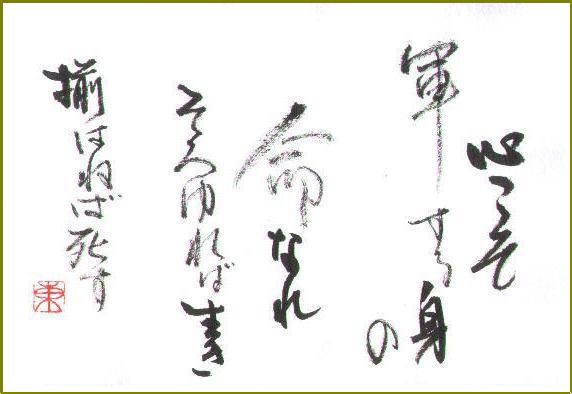 心こそ
軍する身の
命なれ
そろゆれば生き
揃はねば死す
東